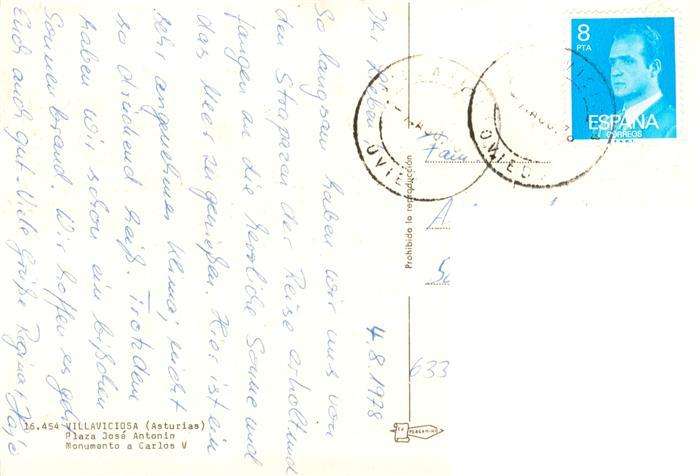 4.8.1978
Ihr Lieben
So langsam haben wir uns von
den Strapazen der Reise erholt und
fangen an die herrliche Sonne und
das Meer zu genießen. Hier ist ein
sehr angenehmes Klima, nicht
so drückend heiß. Trotzdem
haben wir schon ein bißchen
Sonnenbrand. Wir hoffen es geht
Euch auch gut. Viele Grüße Regina,
16.454 VILLAVICIOSA (Asturias)
Plaza José Antonio
Monumento a Carlos V
Prohibida la reproducción
8
PTA
ESPAÑA
CORREOS
OVIEDO
Fam
A
633